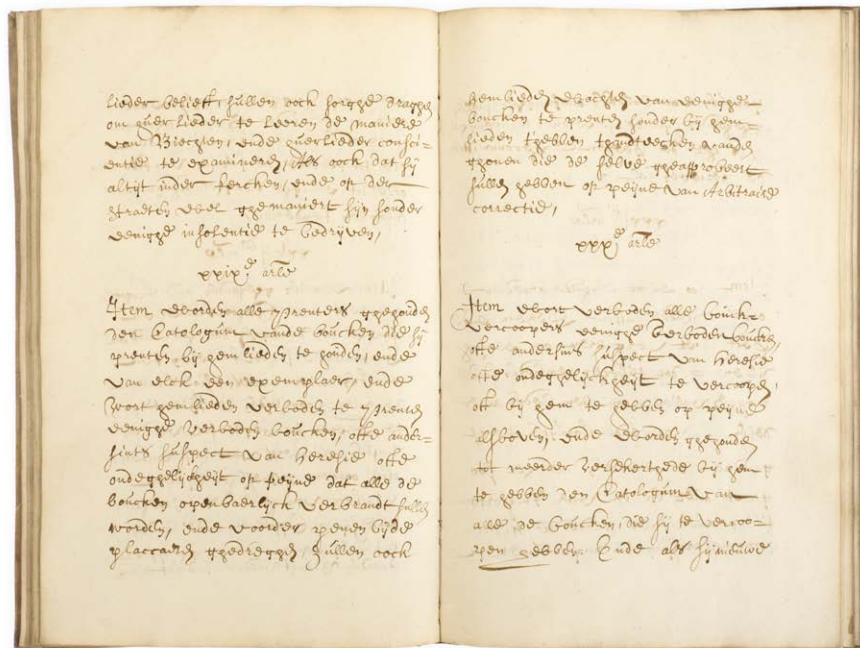 lieder belieft, sullen oock sorghe draghen
om huerlieder te leeren de maniere
van Biechten, ende huerlieder consci-
entie te examineren, Als oock dat sij
altijt inder kercken, ende op der
straeten wel ghemaniert sijn sonder
eenighe insolentie te bedrijven,
xxix.e arle
Item worden alle prenters ghehouden
den Catologum vande boucken die sij
prenten bij hemlieden te houden, ende
van elck een exemplaer, ende
wort hemlieden verboden te prenten
eenighe verboden boucken, ofte ander-
sints suspect van heresie ofte
ondeghelijcheijt op peijne dat alle de
boucken openbaerlijck verbrandt sullen
worden, ende voorder penen bijde
placcaten ghedreghen, Sullen oock
hemlieden wachten van eenighe
boucken te prenten sonder bij hem-
lieden t'hebben thandteeken vande
ghonen die de selve gheapprobeert
sullen hebben op peijne van Arbitraire
correctie,
xxx.e arle
Item wort verboden alle bouck-
vercoopers eenighe verboden boucken,
ofte andersins suspect van heresie
ofte ondeghelijckheijt te vercoopen,
oft bij hem te hebben op peijne
alsboven, ende worden ghehouden
tot meerder versekerthede bij hem
te hebben den Catologum van
alle de boucken, die sij te vercoo-
pen hebben. Ende als sij nieuwe